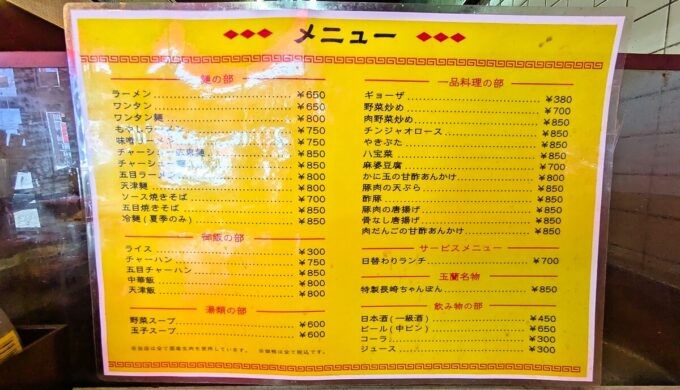 メニュー
麺の部
ラーメン ¥650
ワンタン ¥650
ワンタン麺 ¥800
もやしラーメン ¥750
味噌ラーメン ¥750
チャーシュー広東麺 ¥850
チャーシュー ¥850
五目ラーメン ¥800
天津麺 ¥800
ソース焼きそば ¥700
五目焼きそば ¥850
冷麺(夏季のみ) ¥850
御飯の部
ライス ¥300
チャーハン ¥750
五目チャーハン ¥850
中華飯 ¥800
天津飯 ¥800
湯類の部
野菜スープ ¥600
玉子スープ ¥600
※当店は全て国産生肉を使用しています。 ※価格は全て税込です。
一品料理の部
ギョーザ ¥380
野菜炒め ¥700
肉野菜炒め ¥850
チンジャオロース ¥850
やきぶた ¥850
八宝菜 ¥850
麻婆豆腐 ¥700
かに玉の甘酢あんかけ ¥800
豚肉の天ぷら ¥850
酢豚 ¥850
豚肉の唐揚げ ¥850
骨なし唐揚げ ¥850
肉だんごの甘酢あんかけ ¥850
サービスメニュー
日替わりランチ ¥700
玉蘭名物
特製長崎ちゃんぽん ¥850
飲み物の部
日本酒(一級酒) ¥450
ビール(中ビン) ¥650
コーラ ¥300
ジュース ¥300